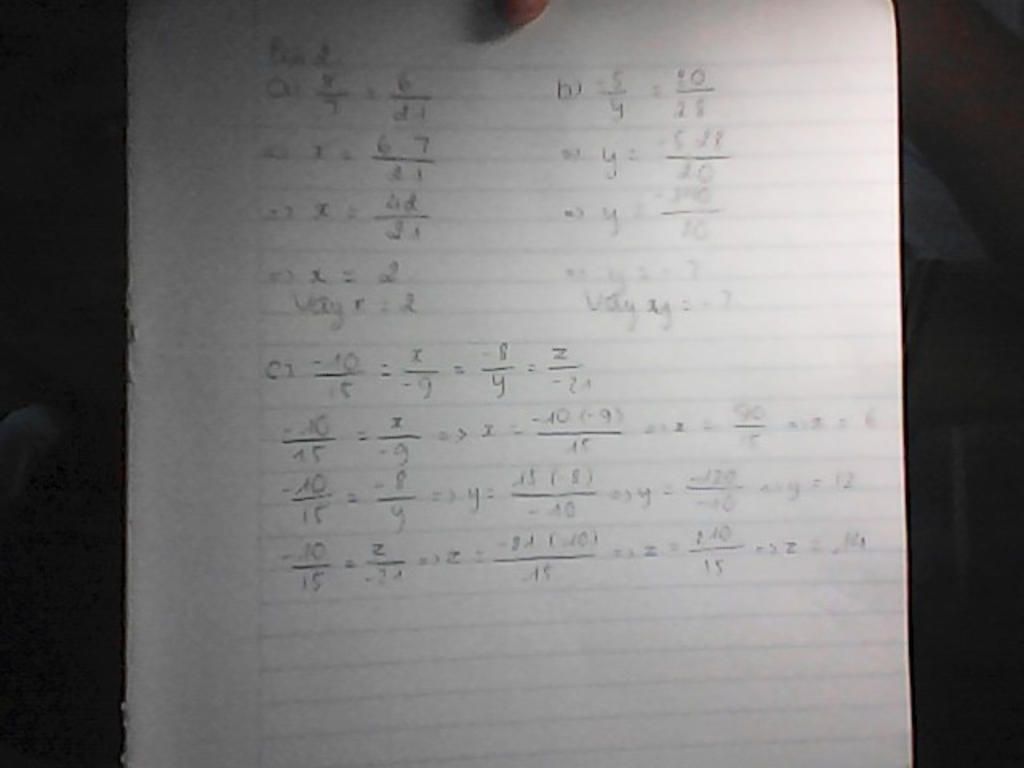 Bài 2
a) x/7 = 6/21
=> x = 6.7/21
=> x = 42/21
=> x = 2
Vậy x = 2
b) -5/y = 20/28
=> y = -5.28/20
=> y = -140/20
=> y = -7
Vậy xy = -7
c) -10/15 = x/-9 = -8/y = z/-21
-10/15 = x/-9 => x = -10.(-9)/15 => x = 90/15 => x = 6
-10/15 = -8/y => y = 15.(-8)/-10 => y = -120/-10 => y = 12
-10/15 = z/-21 => z = -21.(-10)/15 => z = 210/15 => z = 14